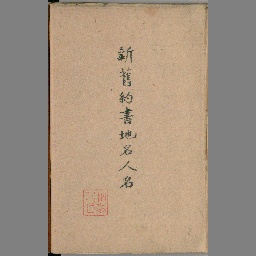 新舊約書地名人名